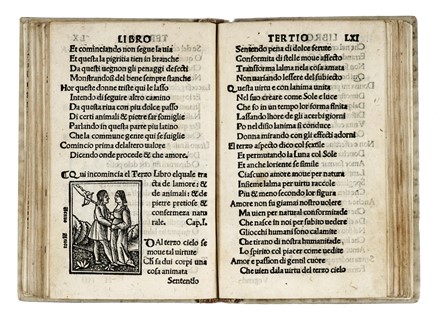 LIBRO
Et cominciando non segue la via
Et questa la pigritia tien in branche
Da questi uegnon gli penaggi defecti
Monstrandosi del bene sempre stanche
Hor queste donne triste qui le lasso
Intendo di seguire altro camino
Da questa riua con piu dolce passo
Di certi animali & pietre far somiglie
Parlando in questa parte piu latino
Che la commune gente qui se suiglie
Comincio prima del altero ualore
Dicendo onde procede & che amore.
Qui incomincia el Terzo Libro elquale tra
cta de lamore: &
de animali: & de
pietre pretiose &
conferma natu
rale. Cap. I.
DAl terzo cielo se
moue tal uirtute
Ch fa dui corpi una
cosa animata
Sentendo
TERTIO LXI
Sentendo pena di dolce ferute
Conformita di stelle moue affecto
Transforma lalma nela cosa amata
Non uariando lessere del subiecto
Questa uirtu e con lanima unita
Nel suo creare come Sole e luce
Che fo in un tempo lor forma finita
Lassando lhore de gli acerbi giorni
Po nel disio lanima si conduce
Donna mirando con gli effecti adorni
Et terzo aspecto dico col sextile
Et permutando la Luna col Sole
Et anche loriente se simile
Ciascuno amore moue per natura
Insieme lalma per uirtu raccole
Piu & meno secondo lor figura
Amore non fu giamai nostro uolere
Ma uien per natural conformitade
Che nasce in noi per subito uedere
Gliocchi humani sono calamite
Che tirano di nostra humanitade
Lo spirito col piacer come uedite
Amore e passione quale disse
Che uien dala uirtu del terzo cielo